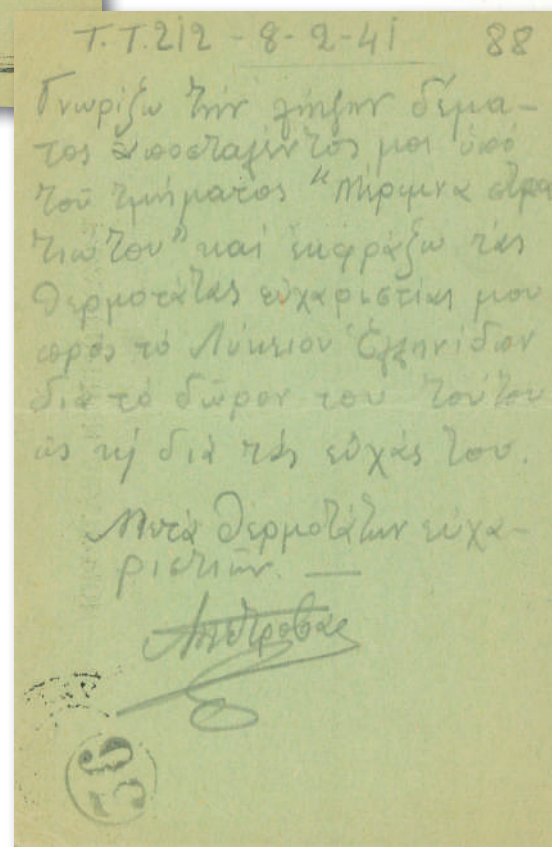 Τ.Τ.212 - 8-2-41 88
Γνωρίζω τὴν λῆψιν δέμα-
τος ἀποσταλέντος μοι ὑπό
τοῦ τμήματος "Μέριμνα στρα
τιώτου" καί ἐκφράζω τάς
θερμοτάτας εὐχαριστίας μου
πρός τό Λύκειον Ἑλληνίδων
διά τό δῶρον του τοῦτο
ὡς κ᾽ διά τάς εὐχάς του.
Μετά θερμοτάτων εὐχα-
ριστιῶν. —
56